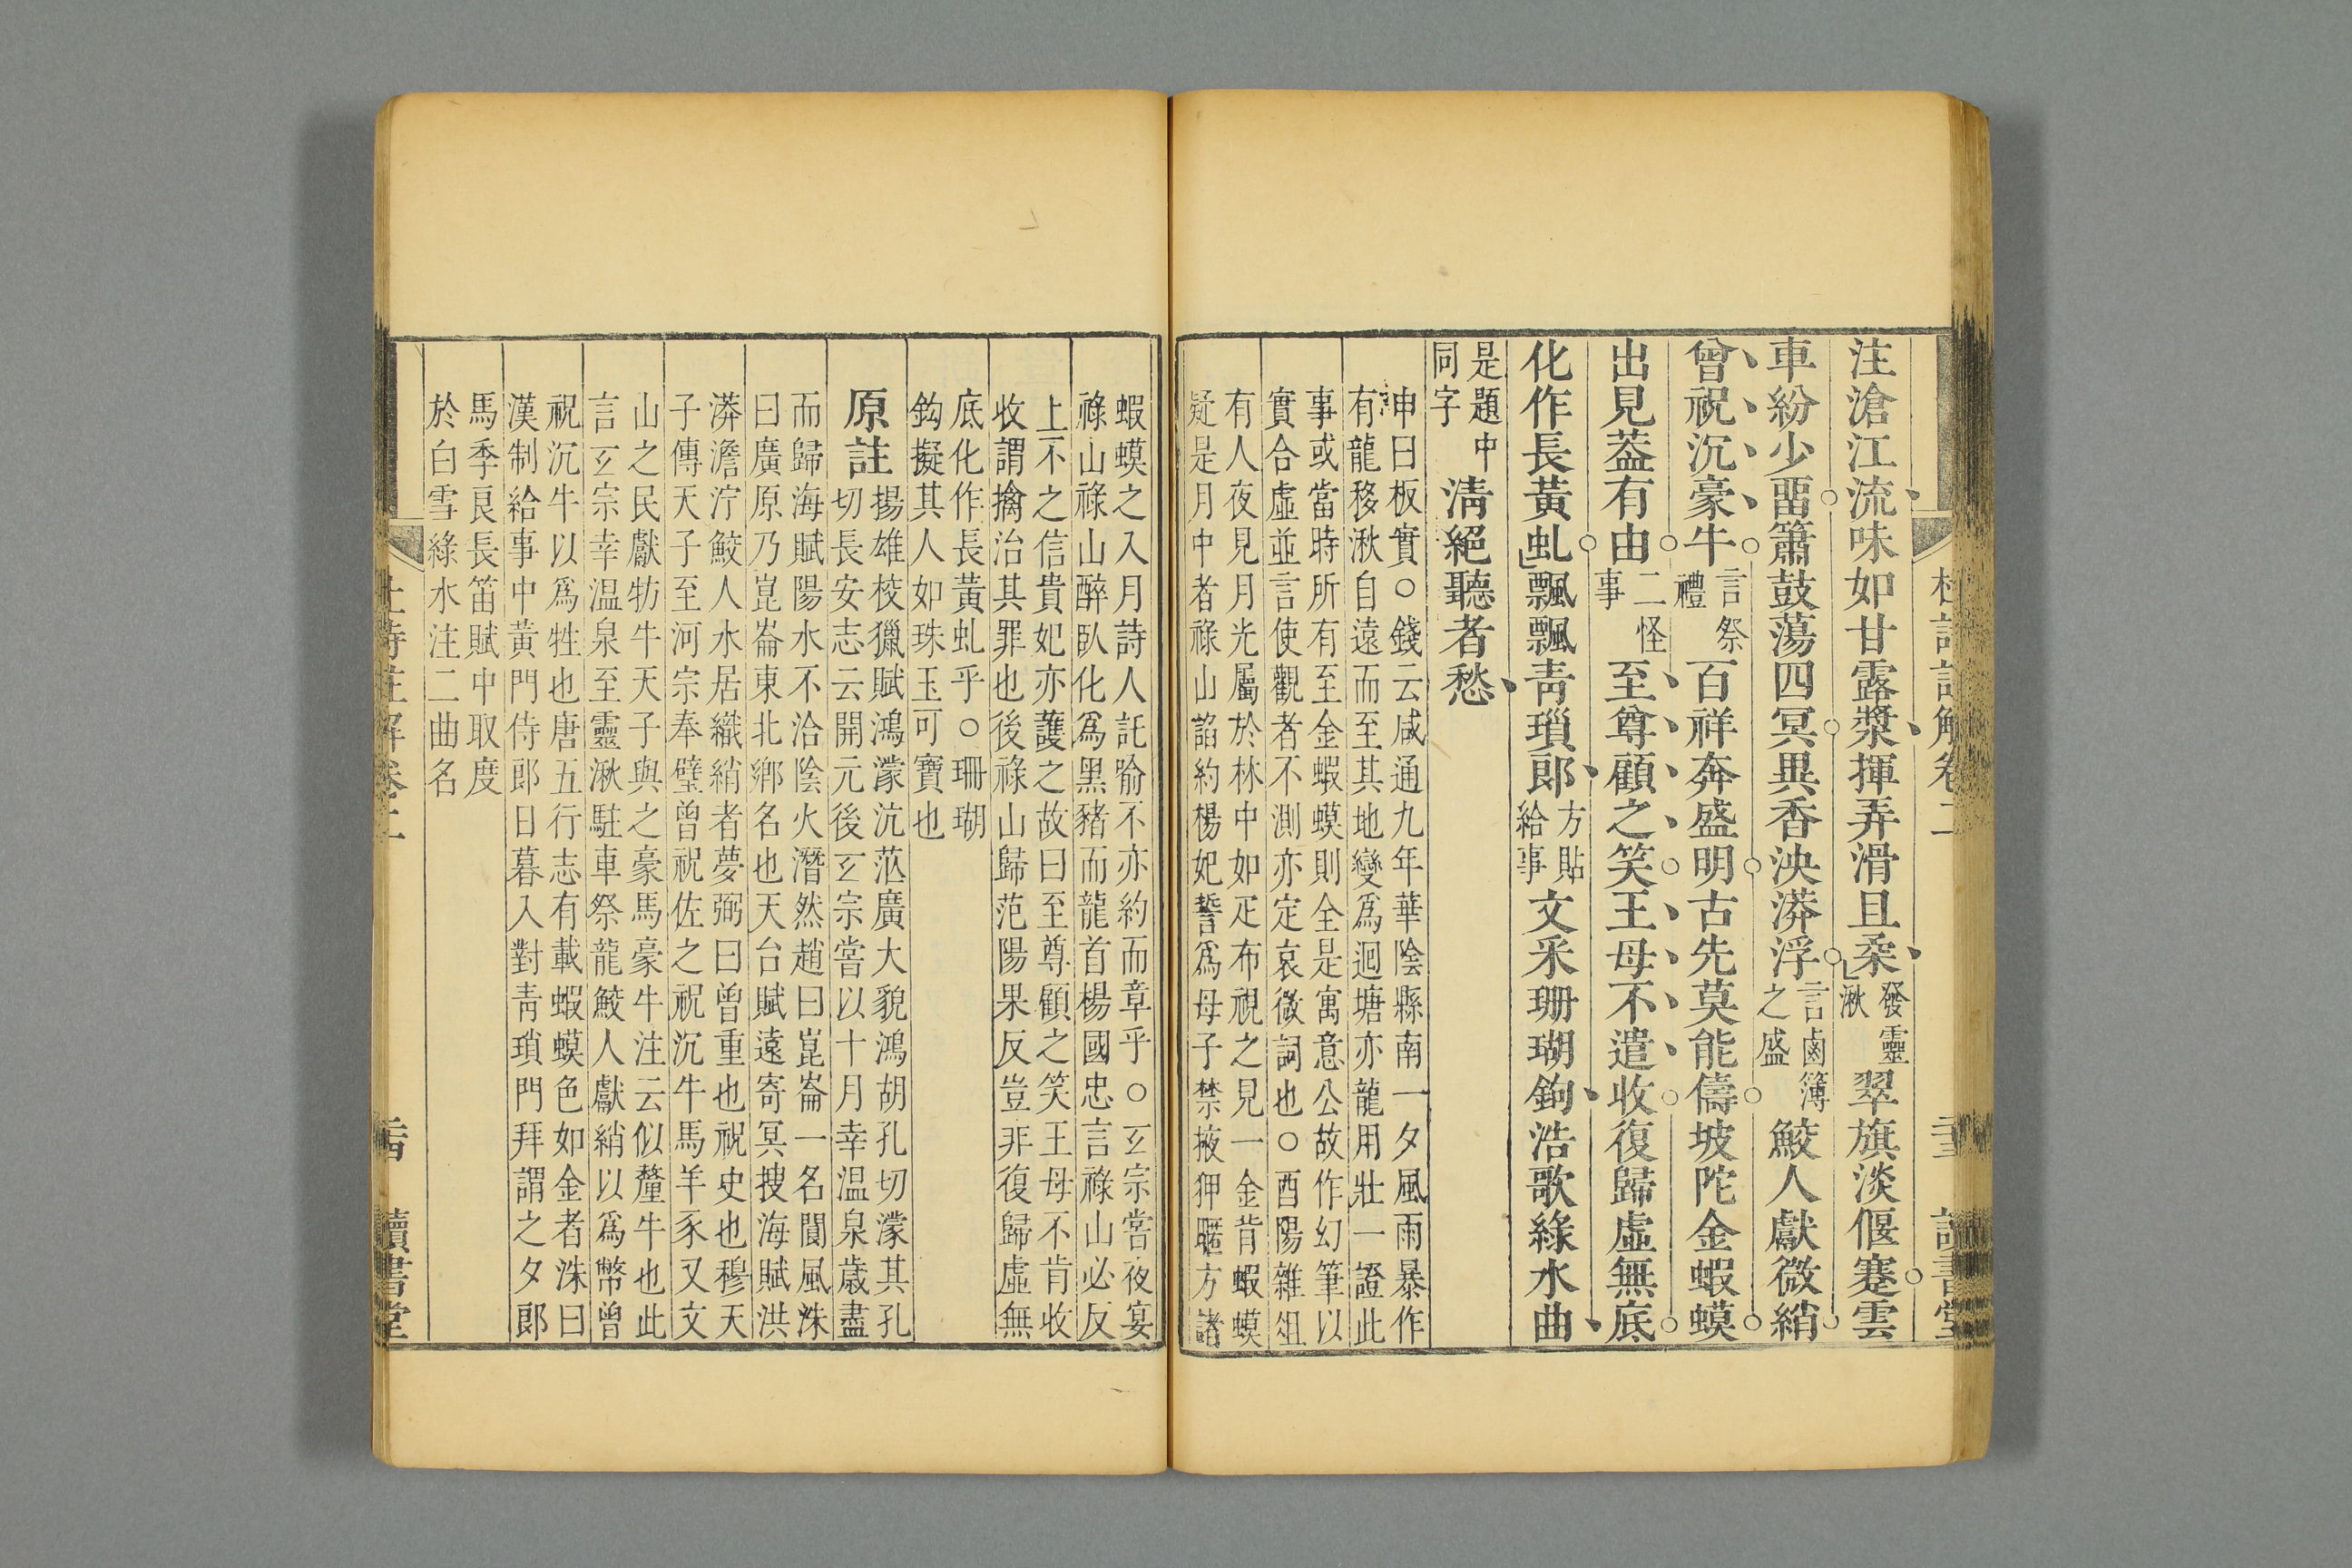 注滄江流味如甘露漿揮弄滑且柔發靈湫翠旗淡偃蹇雲
車紛少畱簫鼓蕩四冥異香泱漭浮言鹵簿之盛鮫人獻微綃
曾祝沉豪牛言祭禮百祥奔盛明古先莫能儔坡陀金蝦蟆
出見葢有由二怪事至尊顧之笑王母不遣收復歸虛無底
化作長黃虬飄飄靑瑣郎方貼給事文采珊瑚鉤浩歌綠水曲
是題中同字淸絕聽者愁
申曰板實○錢云咸通九年華陰縣南一夕風雨暴作
有龍移湫自遠而至其地變爲迴塘亦龍用壯一證此
事或當時所有至金蝦蟆則全是寓意公故作幻筆以
實合虛並言使觀者不測亦定哀微詞也○酉陽雜俎
有人夜見月光屬於林中如疋布視之見一金背蝦蟆
疑是月中者祿山諂約楊妃誓爲母子禁掖狎暱方諸
蝦蟆之入月詩人託喻不亦約而章乎○玄宗嘗夜宴
祿山祿山醉臥化爲黑豬而龍首楊國忠言祿山必反
上不之信貴妃亦護之故曰至尊顧之笑王母不肯收
收謂擒治其罪也後祿山歸范陽果反豈非復歸虛無
底化作長黃虬乎○珊瑚
鉤擬其人如珠玉可寶也
原註
揚雄校獵賦鴻濛沆茫廣大貌鴻胡孔切濛其孔
切長安志云開元後玄宗嘗以十月幸温泉歲盡
而歸海賦陽水不治陰火潛然趙曰崑崙一名閬風洙
曰廣原乃崑崙東北鄕名也天台賦遠寄冥搜海賦洪
漭澹泞鮫人水居織綃者夢弼曰曾重也祝史也穆天
子傳天子至河宗奉璧曾祝佐之祝沉牛馬羊豕又文
山之民獻牥牛天子與之豪馬豪牛注云似犛牛也此
言玄宗幸温泉至靈湫駐車祭龍鮫人獻綃以爲幣曾
祝沉牛以爲牲也唐五行志有載蝦蟆色如金者洙曰
漢制給事中黃門侍郎日暮入對靑瑣門拜謂之夕郎
馬季良長笛賦中取度
於白雪綠水注二曲名